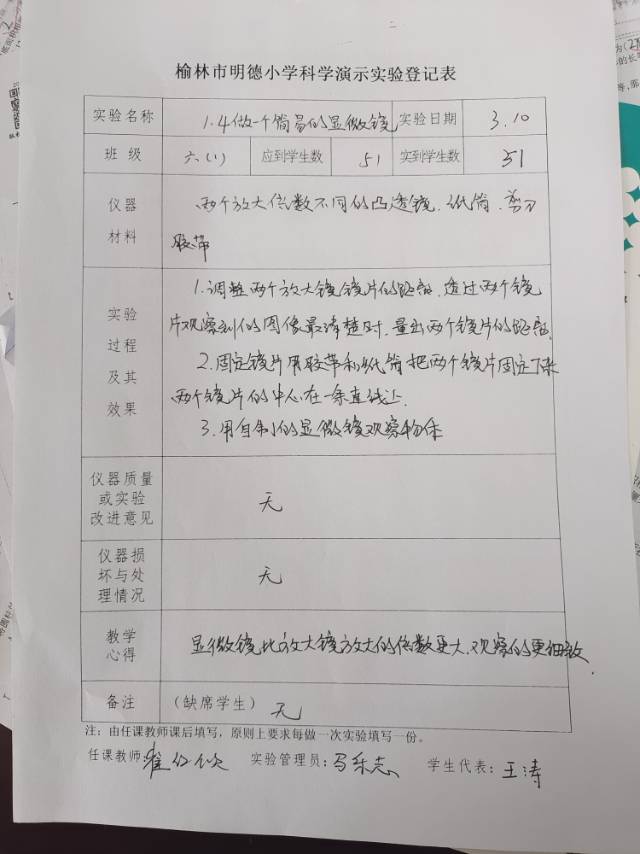 榆林市明德小学科学演示实验登记表
实验名称 1.4做一个简易的显微镜 实验日期 3.10
班 级 六(1) 应到学生数 51 实到学生数 51
仪器材料 两个放大倍数不同的凸透镜、纸筒、剪刀
胶带
实验过程及其效果 1.调整两个放大镜镜片的距离,透过两个镜
片观察到的图像最清楚时,量出两个镜片的距离
2.固定镜片用胶带和纸筒把两个镜片固定下来
两个镜片的中心在一条直线上.
3.用自制的显微镜观察物体
仪器质量或实验改进意见 无
仪器损坏与处理情况 无
教学心得 显微镜比放大镜放大的倍数更大,观察的更细致.
备注 (缺席学生) 无
注:由任课教师课后填写,原则上要求每做一次实验填写一份。
任课教师: 实验管理员:马乐志 学生代表:王涛